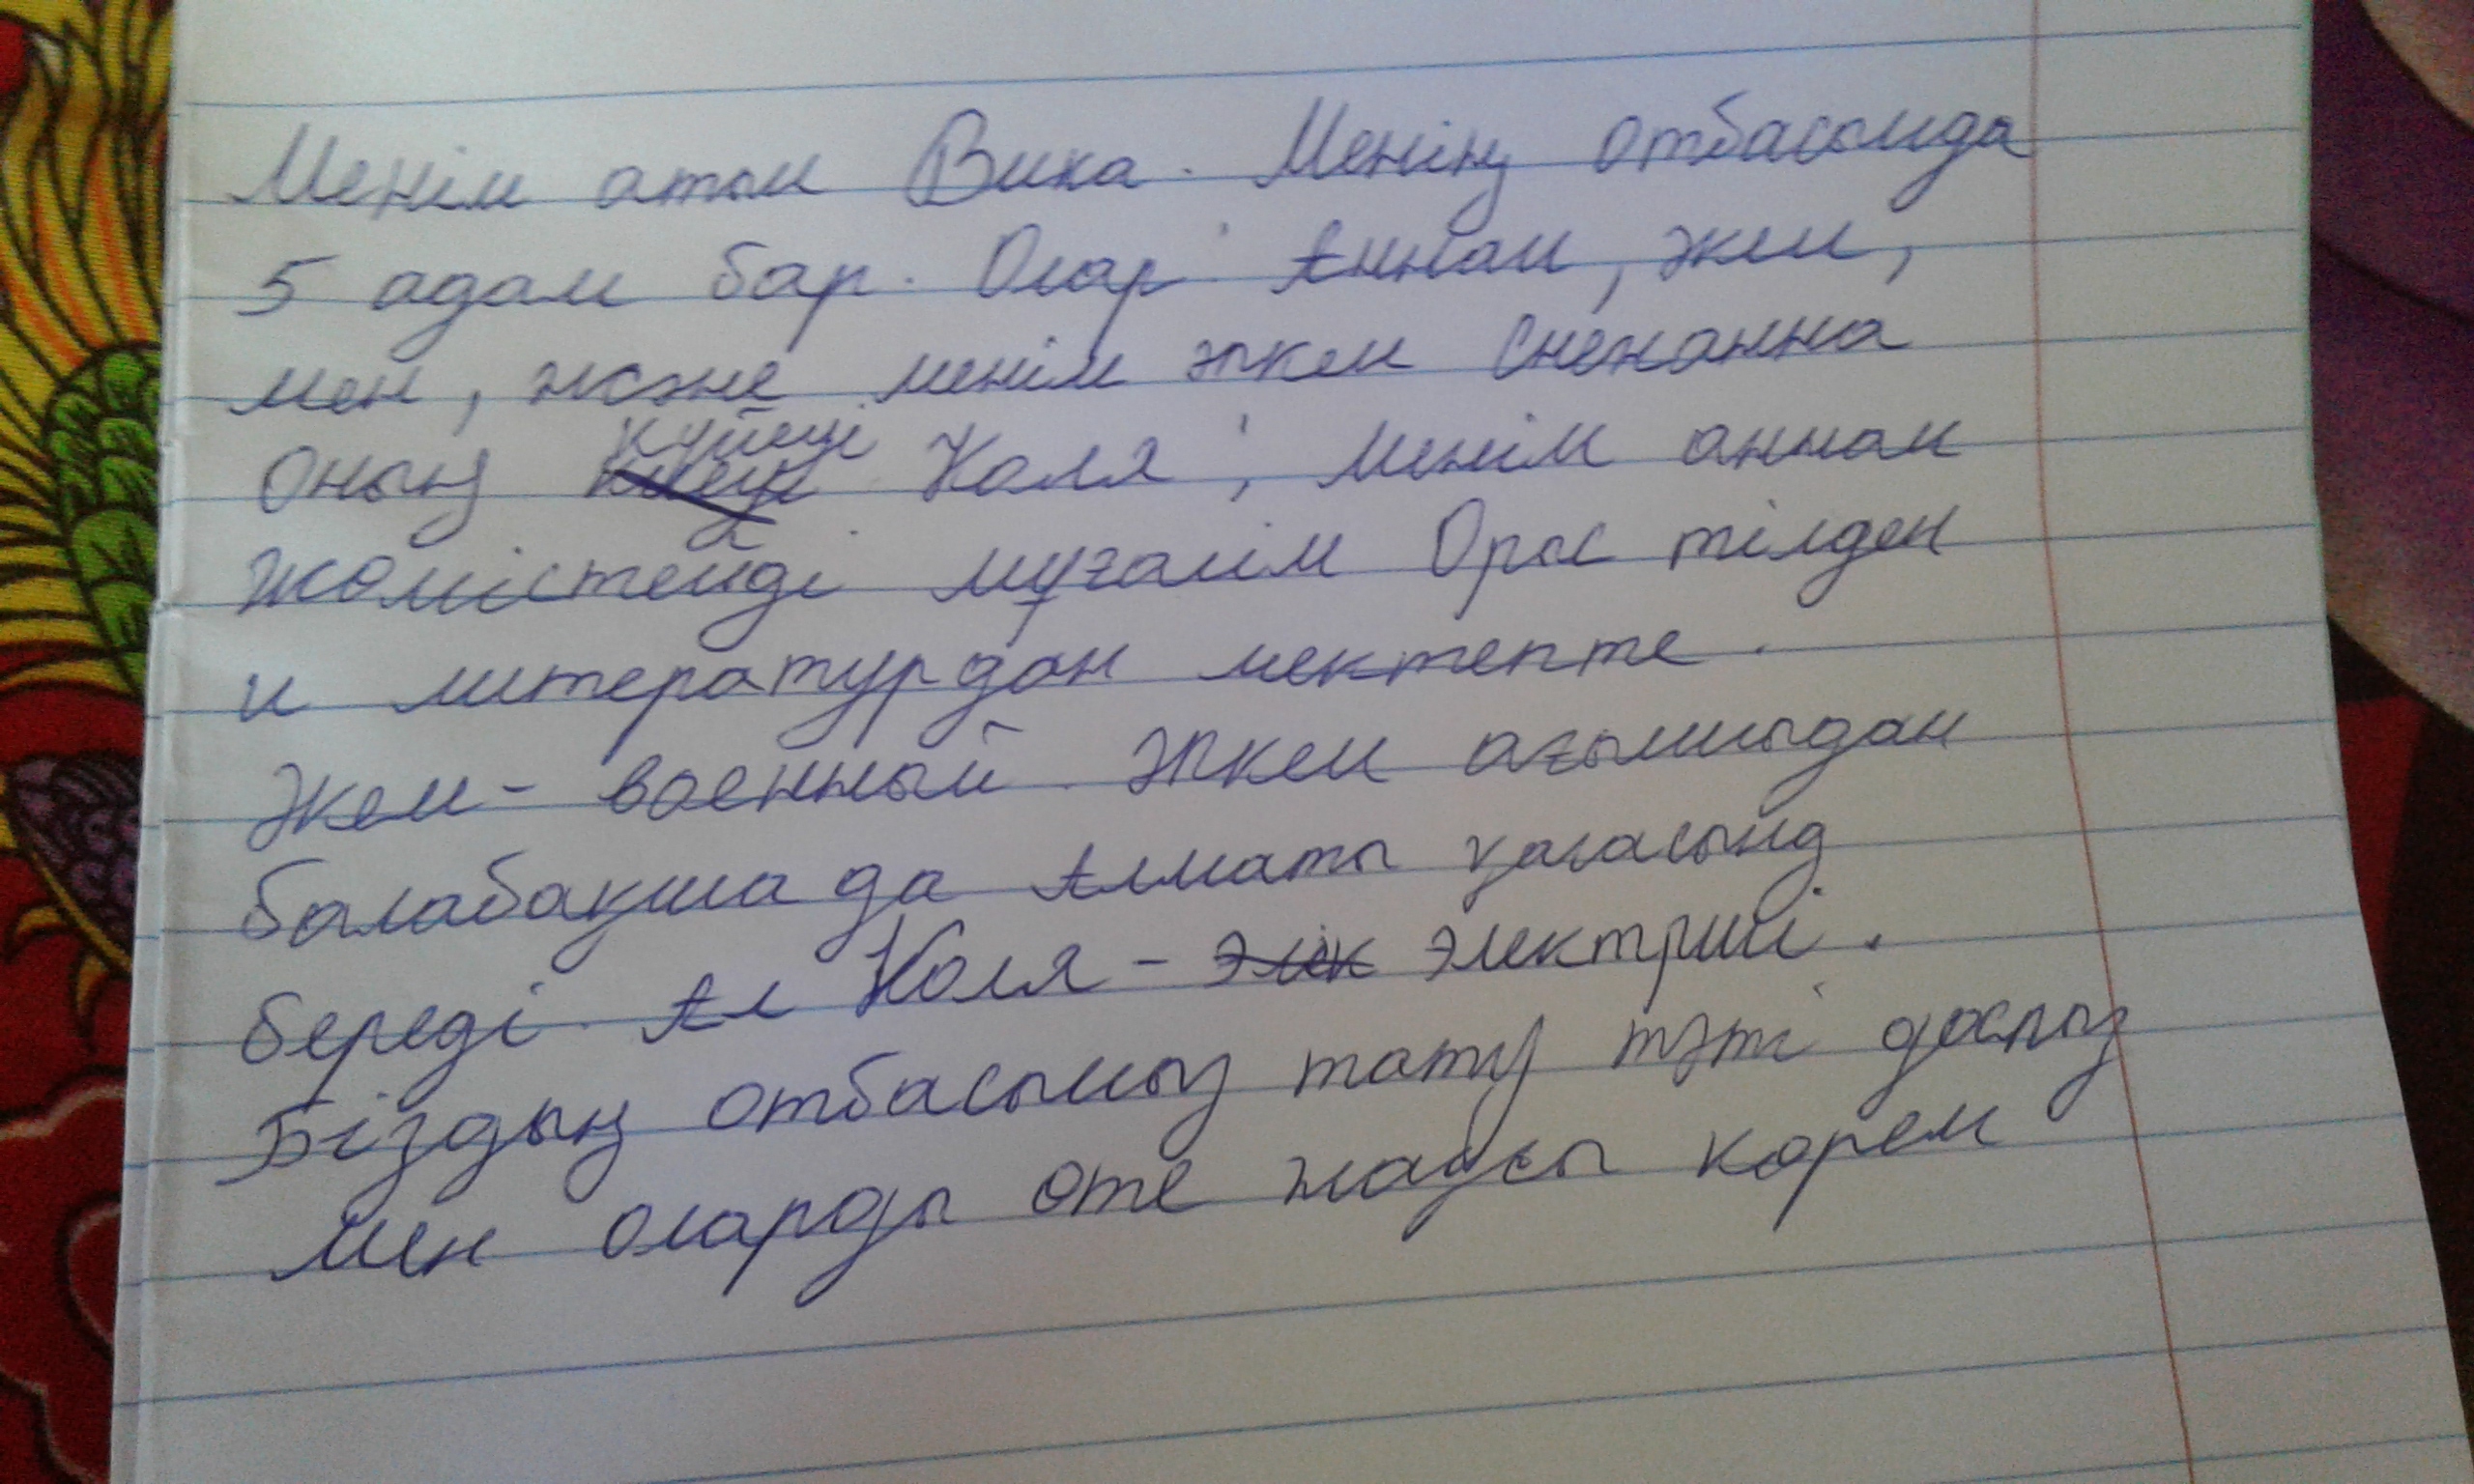 Менім атым Вика. Менің отбасымда
5 адам бар. Олар: Аннам, әкем,
мен, және менім әпкем Снежанна
Оның күйеуі Коля; менім аннам
жұмістейді мұғалім Орыс тілден
и литературдан мектепте.
Әкем - военный. Әпкем ағылшыдан
балабақша да Алматы қаласынд
береді. Ал Коля - элек электриші.
Біздың отбасымыз тату тәті доспыз
Мен оларды өте жақсы көрем